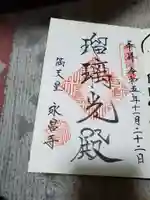 奉拝
令和五年十二月二十二日
瑠璃光殿
高天皇
永昌寺